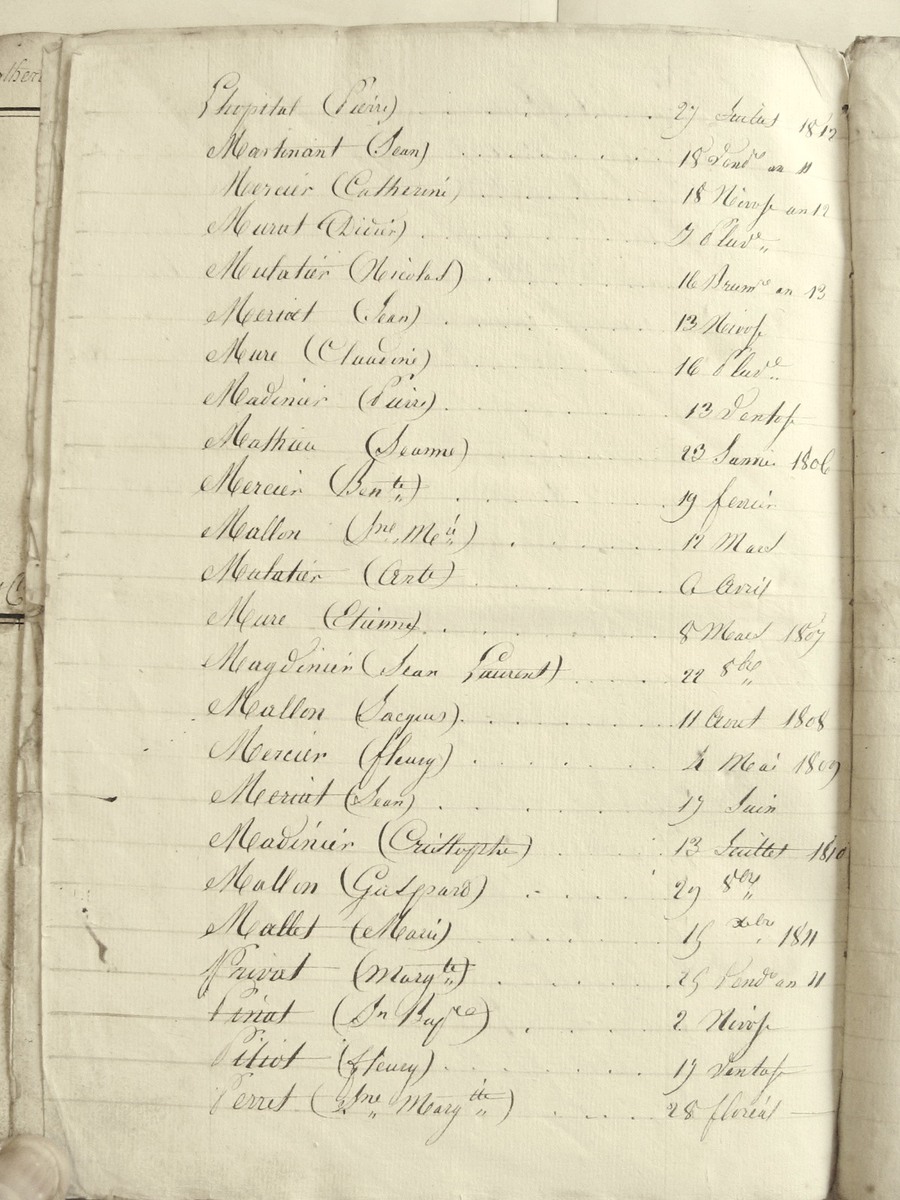 Lhopital (Pierre) 27 Juillet 1812
Martinant (Jean) 18 Vend.re an 11
Mercier (Catherine) 18 Nivose an 12
Murat (Didier) 7 Pluv.e
Mulatier (Nicolas) 16 Brum.re an 13
Meriat (Jean) 13 Nivose
Mure (Claudine) 16 Pluv.e
Madinier (Pierre) 13 Ventose
Mathieu (Jeanne) 23 Janvier 1806
Mercier (Ben.te) 19 fevrier
Mallon (J.ne M.ie) 12 Mars
Mulatier (Ant.e) 6 Avril
Mure (Etienne) 8 Mars 1807
Magdinier (Jean Laurent) 22 8bre
Mallon (Jacques) 11 Aout 1808
Mercier (fleury) 4 Mai 1809
Meriat (Jean) 17 Juin
Madinier (Cristtophe) 13 Juillet 1810
Mallon (Gaspard) 29 8bre
Mallet (Marie) 15 xbre 1811
Privat (Marg.te) 25 Vend.e an 11
Pinat (Jn Bap.te) 2 Nivose
Pitiot (fleury) 17 Ventose
Perret (J.ne Marg.te) 28 floréal